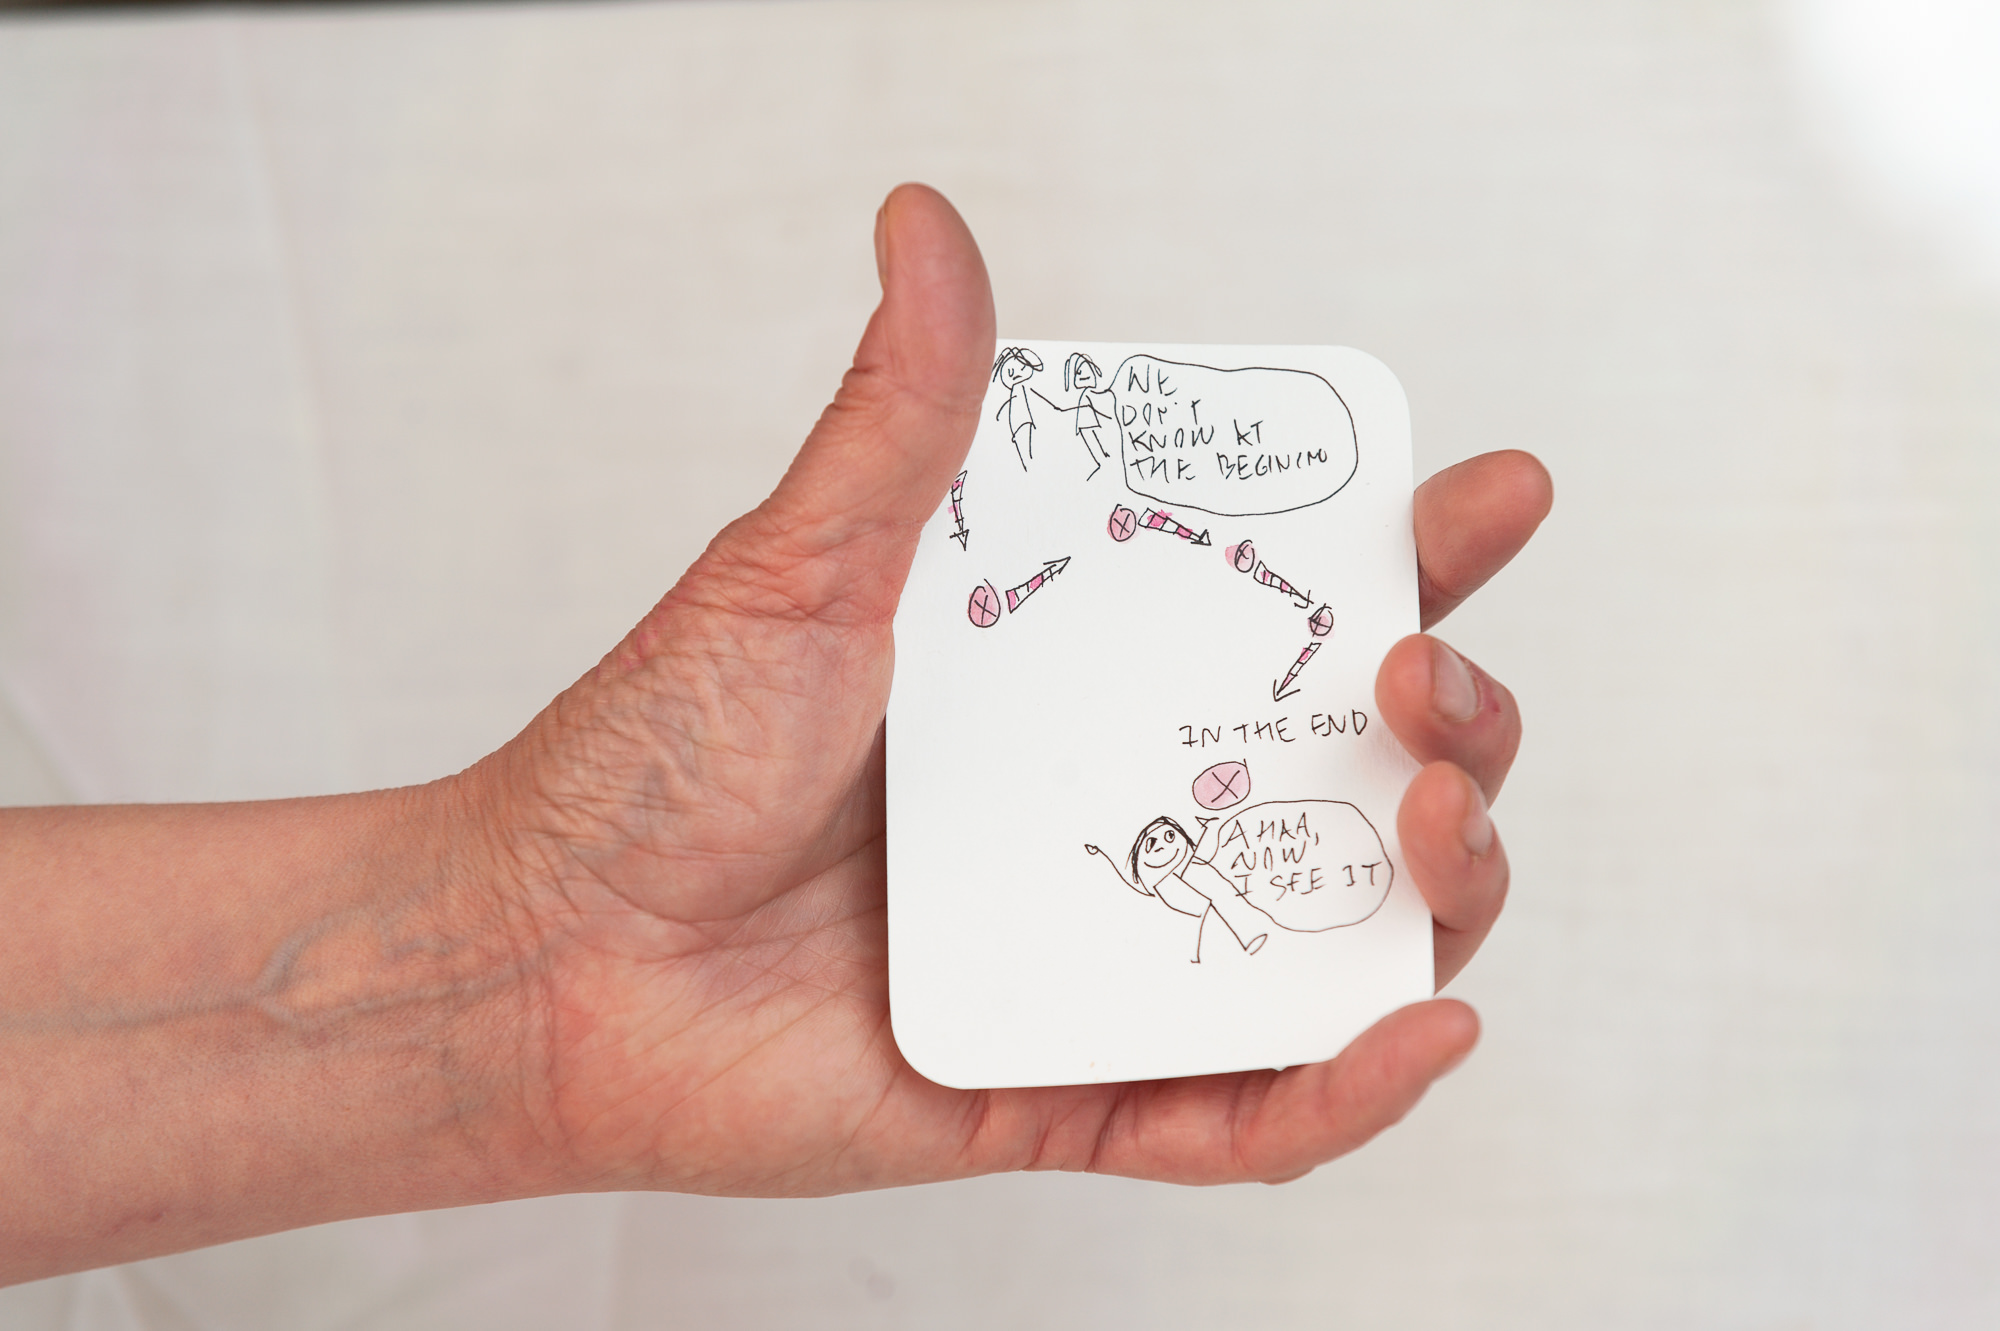 WE
DON'T
KNOW AT
THE BEGINING
IN THE END
AHAA,
NOW
I SEE IT